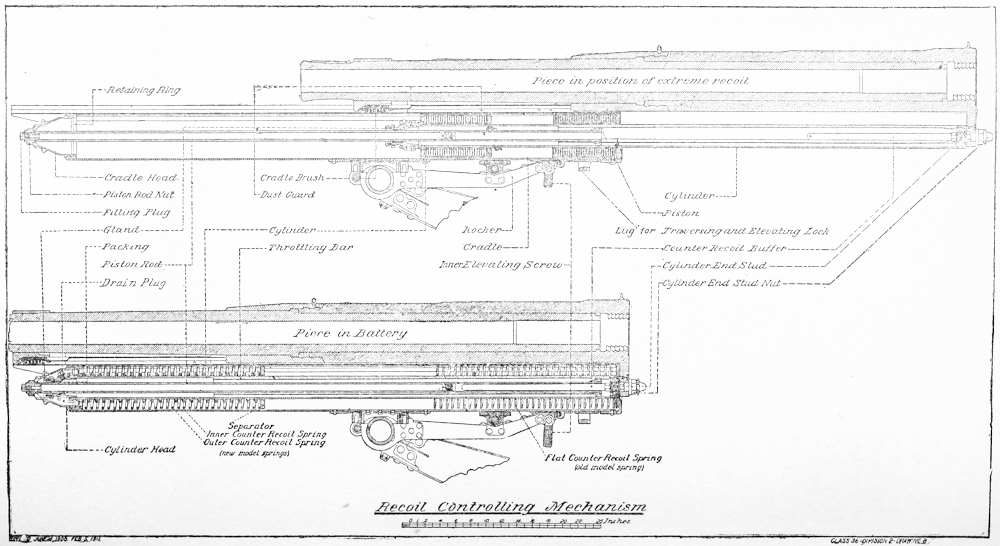 Piece in position of extreme recoil
Retaining Ring
Cradle Head
Piston Rod Nut
Filling Plug
Gland
Packing
Piston Rod
Drain Plug
Cradle Brush
Dust Guard
Cylinder
Throttling Bar
Rocker
Cradle
Inner Elevating Screw
Cylinder
Piston
Lug for Traversing and Elevating Lock
Counter Recoil Buffer
Cylinder End Stud
Cylinder End Stud Nut
Piece in Battery
Separator
Inner Counter Recoil Spring
Outer Counter Recoil Spring
(new model springs)
Cylinder Head
Flat Counter Recoil Spring
(old model spring)
Recoil Controlling Mechanism
Inches
FEB. 5, 1912.
CLASS 36-DIVISION 2-DRAWING 8.